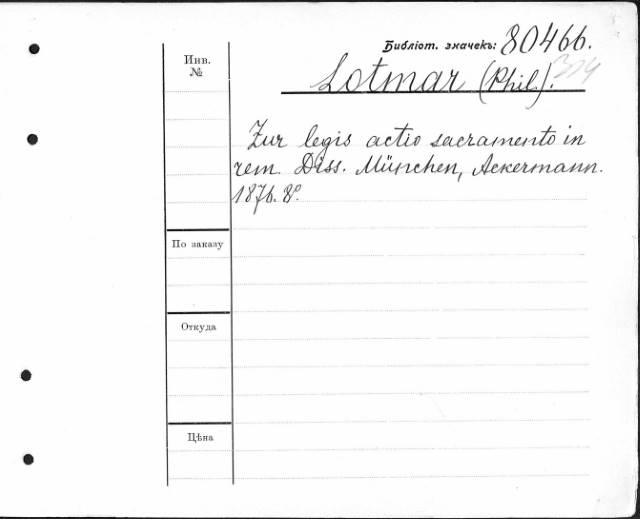 Библіот. значекъ: 80466.
Инв.
№
Lotmar (Phil.).
Zur legis actio sacramento in
rem. Diss. München, Ackermann.
1876. 8º.
По заказу
Откуда
Цѣна